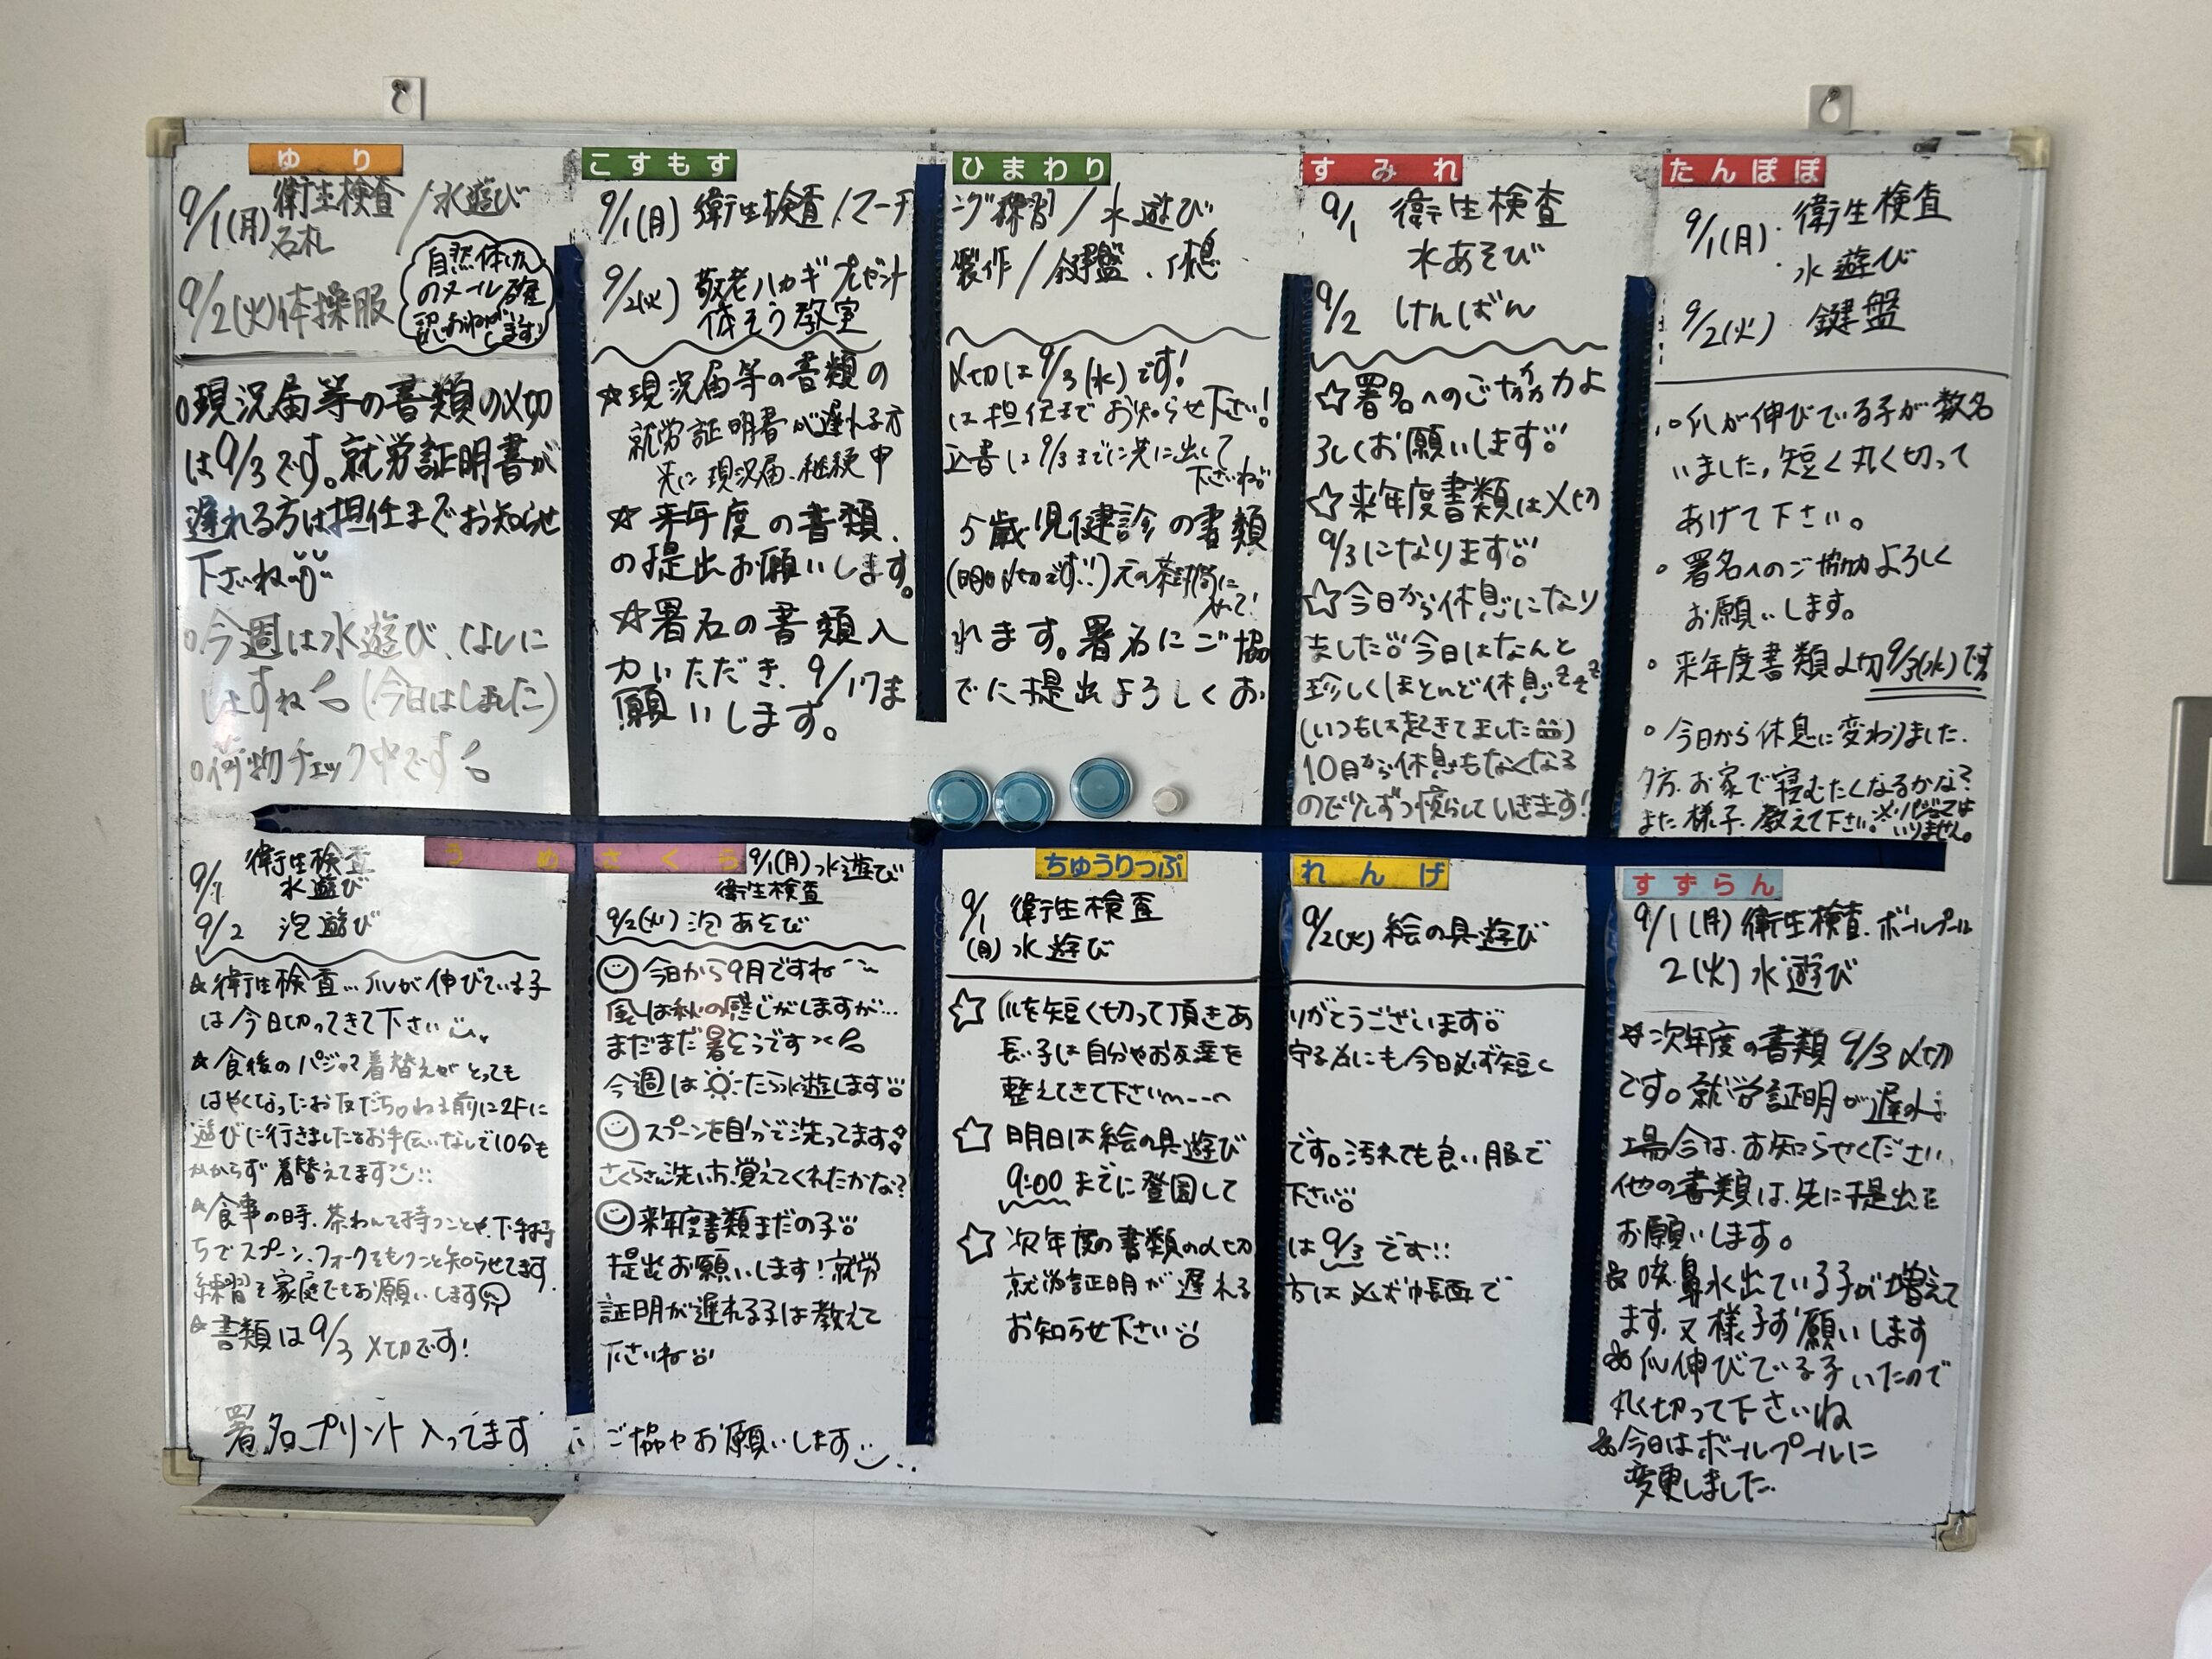 ゆり
9/1(月) 衛生検査 / 水遊び
名札
9/2(火) 体操服
自然体けん
のメール確
認おねがい
します
○現況届等の書類の〆切
は9/3です。就労証明書が
遅れる方は担任までお知らせ
下さいね
○今週は水遊び、なしに
しますね (今日はしました)
○荷物チェック中です
こすもす
ひまわり
9/1(月) 衛生検査 / マーチング練習 / 水遊び
9/2(火) 敬老ハガキプレゼント製作 / 鍵盤、休息
体そう教室
☆現況届等の書類の〆切は9/3(水)です!
就労証明書が遅れる方は担任までお知らせ下さい!
先に現況届、継続申込書は9/3までに先に出して
下さいね
☆来年度の書類、5歳児健診の書類
の提出お願いします。(明日〆切です!!)元の茶封筒に
入れて!
☆署名の書類入れます。署名にご協
力いただき、9/17までに提出よろしくお
願いします。
すみれ
9/1 衛生検査
水あそび
9/2 けんばん
☆署名へのご協力よ
ろしくお願いします
☆来年度書類は〆切
9/3になります
☆今日から休息になり
ました 今日はなんと
珍しくほとんど休息zzz
(いつもは起きてました)
10日から休息もなくなる
ので少しずつ慣らしていきます!
たんぽぽ
9/1(月) 衛生検査
水遊び
9/2(火) 鍵盤
○爪が伸びている子が数名
いました。短く丸く切って
あげて下さい。
○署名へのご協力よろしく
お願いします。
○来年度書類〆切9/3(水)です
○今日から休息に変わりました。
夕方、お家で寝むたくなるかな?
また様子、教えて下さい。※パジャマは
いりません。
うめ
9/1 衛生検査
水遊び
9/2 泡遊び
☆衛生検査…爪が伸びている子
は今日切ってきて下さい
☆食後のパジャマ着替えがとっても
はやくなったお友だち。ねる前に2Fに
遊びに行きました。お手伝いなしで10分も
かからず着替えてます!!
☆食事の時、茶わんを持つことや、下手持
ちでスプーン、フォークをもつこと知らせてます。
練習を家庭でもお願いします
☆書類は9/3 〆切です!
さくら
9/1(月) 水遊び
衛生検査
9/2(火) 泡あそび
今日から9月ですね
風は秋の感じがしますが…
まだまだ暑そうです
今週は☼だったら水遊します
スプーンを自分で洗ってます
さくらさん洗い方、覚えてくれたかな?
来年度書類まだの子
提出お願いします!就労
証明が遅れる子は教えて
下さいね
署名プリント入ってます ご協力お願いします
ちゅうりっぷ
れんげ
9/1(月) 衛生検査
水遊び
9/2(火) 絵の具遊び
☆爪を短く切って頂きありがとうございます
長い子は自分やお友達を守る為にも今日必ず短く
整えてきて下さい
☆明日は絵の具遊びです。汚れても良い服で
9:00までに登園して下さい
☆次年度の書類の〆切は9/3です!!
就労証明が遅れる方は必ず帳面で
お知らせ下さい
すずらん
9/1(月) 衛生検査、ボールプール
2(火) 水遊び
☆次年度の書類9/3〆切
です。就労証明が遅れる
場合は、お知らせください。
他の書類は、先に提出を
お願いします。
☆咳、鼻水出ている子が増えて
ます。又様子お願いします
☆爪伸びている子いたので
丸く切って下さいね
☆今日はボールプールに
変更しました。